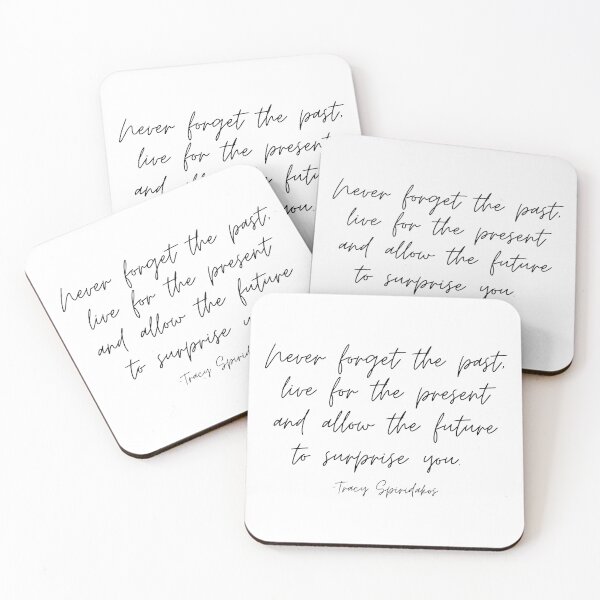 Never forget the past,
live for the present
and
future
you.
Never forget the past,
live for the present
and allow the future
to surprise you
Never forget the past,
live for the present
and allow the future
to surprise
-Tracy
Never forget the past,
live for the present
and allow the future
to surprise you.
-Tracy Spiridakos